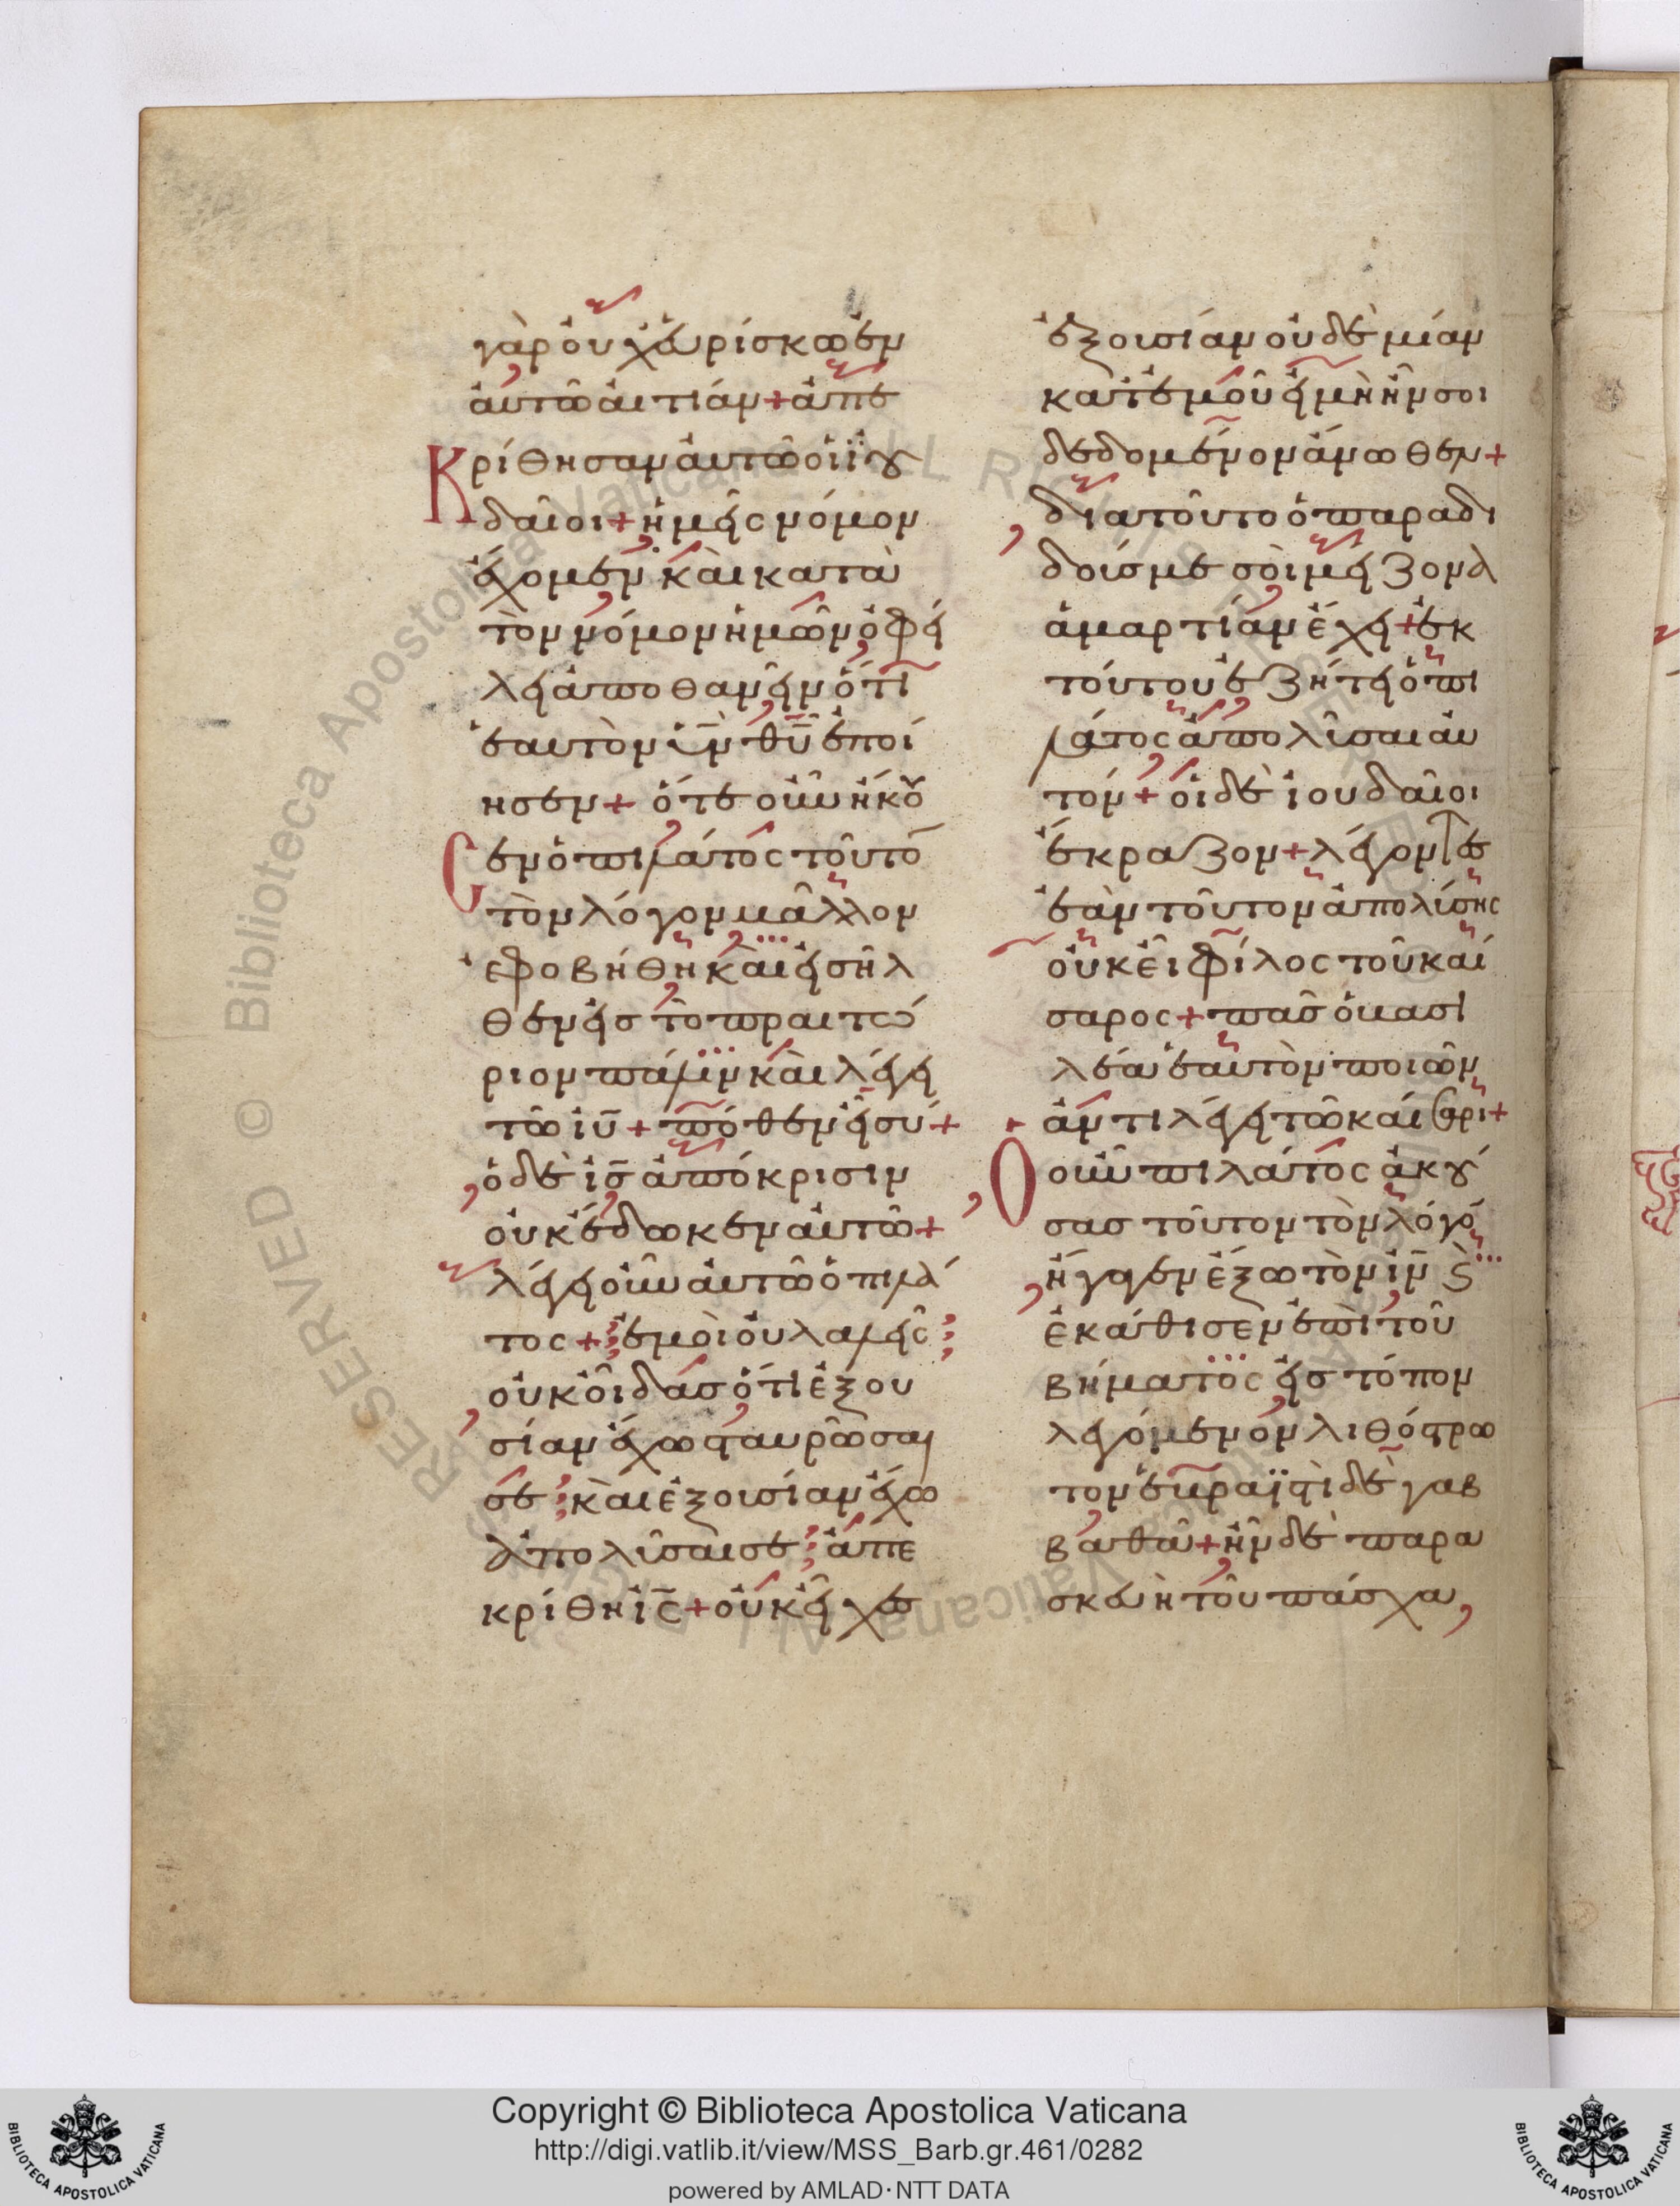 γὰρ οὐχ ἑυρίσκω ἐν
ἀυτῶ ἀιτίαν + ἀπε
Κρίθησαν ἀυτῶ ὁι ϊου
δαῖοι + ἡμεῖς νόμον
ἔχομεν κὰι κατὰ
τὸν νόμον ἡμῶν ὀφεί
λει ἀποθανεῖν ὅτι
ἑαυτὸν ὑν θυ ἐποί
ησεν + ὅτε οὖν ἤκου
Σεν ὁ πιλάτος τοῦτο
τὸν λόγον μᾶλλον
ἐφοβήθη κὰι εἰσῆλ
θεν εἰς τὸ πραιτώ
ριον πάλιν κὰι λέγει
τῶ ιυ + πόθεν εἶ σύ +
ὁ δὲ ις ἀπόκρισιν
οὐκ ἔδωκεν ἀυτῶ +
λέγει οὖν ἀυτῶ ὁ πιλά
τος + ἐμοὶ οὐ λαλεῖς
οὐκ οἶδας ὅτι ἐξου
σίαν ἔχω σταυρῶσαι
σέ κὰι ἐξουσίαν ἔχω
ἀπολῦσαι σε ἀπε
κρίθη ις + οὐκ εἶχες
ἐξουσίαν οὐδὲ μίαν
κατ ἐμοῦ εἰ μὴ ἦν σοι
δεδομένον ἄνωθεν +
διατοῦτο ὁ παραδι
δούς με σοὶ μείζονα
ἁμαρτίαν ἔχει + ἐκ
τούτου ἐζήτει ὁ πι
λάτος ἀπολῦσαι ἀυ
τόν + ὁι δὲ ἰουδαῖοι
ἔκραζον + λέγοντες
ἐὰν τοῦτον ἀπολύσης
οὐκ εἶ φίλος τοῦ καί
σαρος + πᾶς ὁ βασι
λέα ἑαυτὸν ποιῶν
ἀντιλέγει τῶ καίσαρι +
Ὁ οὖν πιλάτος ἀκού
σας τοῦτον τὸν λόγον
ἤγαγεν ἔξω τὸν ιν ϗ
ἐκάθισεν ἐπὶ τοῦ
βήματος εἰς τόπον
λεγόμενον λιθόστρω
τον ἑβραϊστὶ δὲ γαβ
βαθᾶ + ἦν δὲ παρα
σκευὴ τοῦ πάσχα,
Copyright © Biblioteca Apostolica Vaticana
http://digi.vatlib.it/view/MSS_Barb.gr.461/0282
powered by AMLAD·NTT DATA
BIBLIOTECA APOSTOLICA VATICANA
BIBLIOTECA APOSTOLICA VATICANA